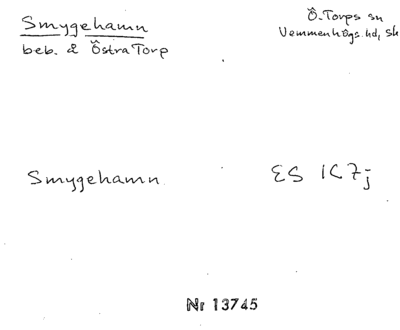 Smygehamn
beb. å Östra Torp
Ö. Torps sn
Vemmenhögs hd, Sk
Smygehamn
ES 1C7j
Nr 13745